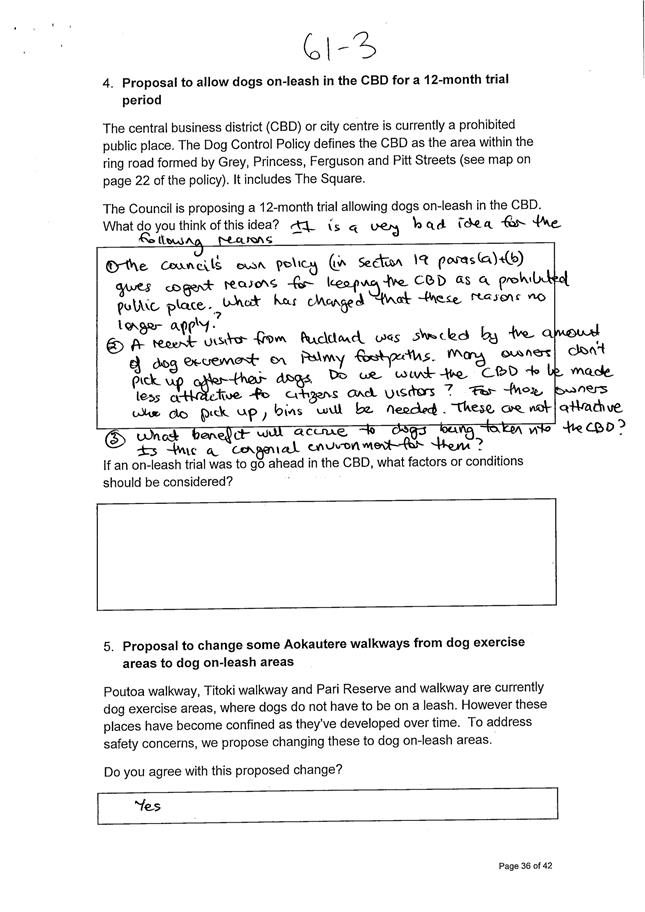 61-3
4. Proposal to allow dogs on-leash in the CBD for a 12-month trial
period
The central business district (CBD) or city centre is currently a prohibited
public place. The Dog Control Policy defines the CBD as the area within the
ring road formed by Grey, Princess, Ferguson and Pitt Streets (see map on
page 22 of the policy). It includes The Square.
The Council is proposing a 12-month trial allowing dogs on-leash in the CBD.
What do you think of this idea? It is a very bad idea for the
following reasons
① The council's own policy (in section 19 paras(a)+(b)
gives cogent reasons for keeping the CBD as a prohibited
public place. What has changed that these reasons no
longer apply?
② A recent visitor from Auckland was shocked by the amount
of dog excrement on Palmy footpaths. Many owners don't
pick up after their dogs. Do we want the CBD to be made
less attractive to citizens and visitors? For those owners
who do pick up, bins will be needed. These are not attractive
③ What benefit will accrue to dogs being taken into the CBD?
Is this a congenial environment for them?
If an on-leash trial was to go ahead in the CBD, what factors or conditions
should be considered?
5. Proposal to change some Aokautere walkways from dog exercise
areas to dog on-leash areas
Poutoa walkway, Titoki walkway and Pari Reserve and walkway are currently
dog exercise areas, where dogs do not have to be on a leash. However these
places have become confined as they've developed over time. To address
safety concerns, we propose changing these to dog on-leash areas.
Do you agree with this proposed change?
Yes
Page 36 of 42